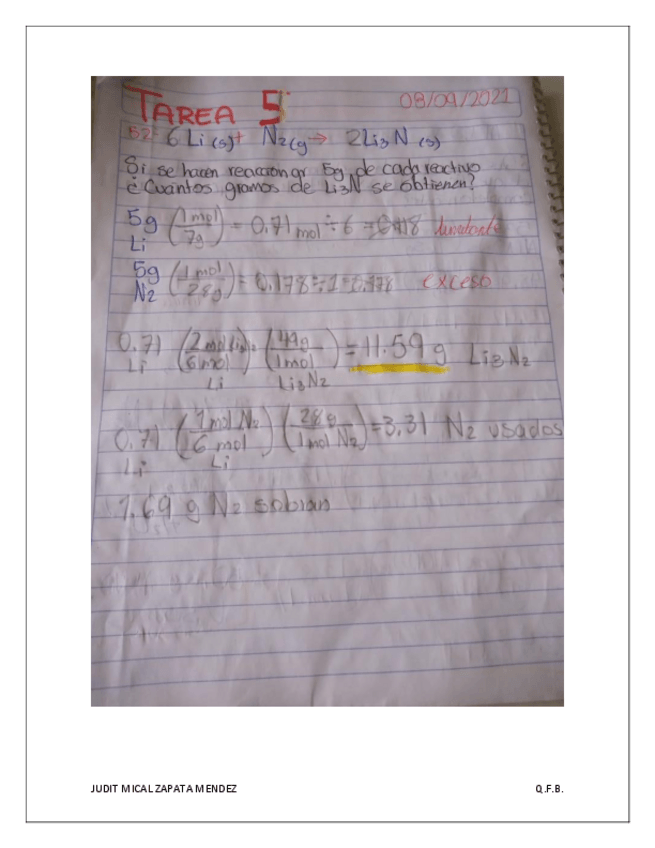 TAREA 5 08/09/2021
52: 6 Li (s) + N2(g → 2Li3 N (s)
Si se hacen reaccionar 5g de cada reactivo
¿Cuántos gramos de Li3N se obtienen?
5g Li (1mol/7g) = 0.71 mol ÷ 6 = 0.118
5g N2 (1mol/28g) = 0.178 ÷ 1 = 0.178 exceso
0.71 Li (2mol /6mol Li) (49g/1mol Li3N2) = 11.59 g Li3N2
0.71 Li (1mol N2/6 mol Li) (28g/1mol N2) = 3.31 N2 usados
1.69 g N2 sobran
JUDIT MICAL ZAPATA MENDEZ Q.F.B.